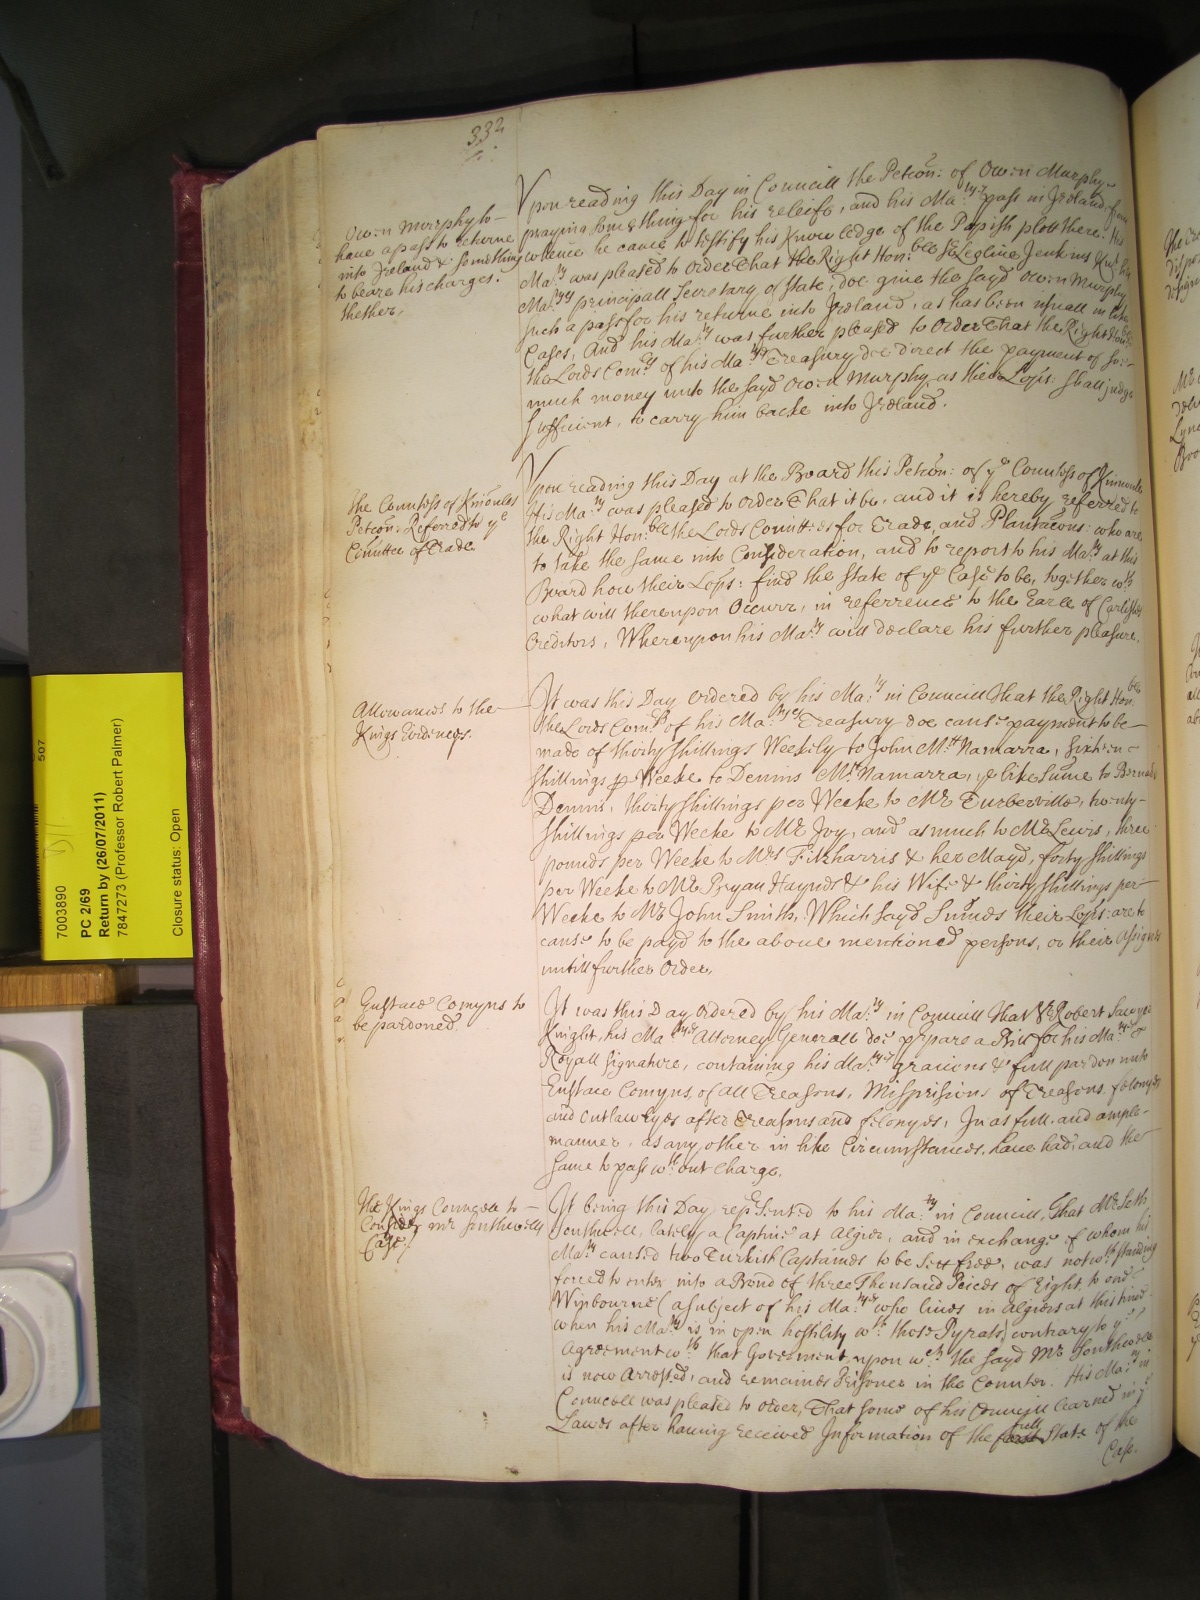 332
Owen Murphy to
have a pass to returne
into Ireland & something
to beare his charges.
thether.
Upon reading this Day in Councill the Peticon: of Owen Murphy
praying something for his releife, and his Ma:tys pass in Ireland, from
whence he came to testify his Knowledge of the Papish plott there. His
Ma:ty was pleased to order That the Right Hon:ble Sr Leoline Jenkins Knt his
Ma:tys principall Secretary of State, doe give the sayd Owen Murphy
such a pass for his returne into Ireland, as has been usuall in like
Cases, And his Ma:ty was further pleased to Order That the Right Hon:ble
the Lords Comrs of his Ma:tys Treasury doe direct the payment of soe
much money unto the sayd Owen Murphy as their Lops: shall judge
sufficient, to carry him backe into Ireland.
The Countess of Kinoules
Petcon: Referred to ye
Comittee of Trade.
Upon reading this Day at the Board this Peticon: of ye Countess of Kinnoule
His Ma:ty was pleased to order That it be, and it is hereby referred to
the Right Hon:ble the Lords Comittees for Trade and Plantacons: who are
to take the same into Consideration, and to report to his Ma:ty at this
Board how their Lops: find the state of ye Case to be, together wth
what will thereupon Occurr, in referrence to the Earle of Carlisles
Creditors, Whereupon his Ma:ty will declare his further pleasure.
Allowances to the
Kings Evidences.
It was this Day ordered by his Ma:ty in Councill That the Right Hon:ble
the Lords Comrs of his Ma:tyes Treasury doe cause payment to be
made of thirty shillings Weekely to John Mc Namarra, sixteen
shillings p Weeke to Dennis Mc Namarra, ye like Sume to Bernard
Dennis, thirty shillings per Weeke to Mr Turberville, twenty
shillings per Weeke to Mr Ivy, and as much to Mr Lewis, three
pounds per Weeke to Mrs Fitzharris & her Mayd, forty shillings
per Weeke to Mr Bryan Haynes & his Wife & thirty shillings per
Weeke to Mr John Smith, Which sayd Sumes their Lops: are to
cause to be payd to the above mentioned persons, or their Assignes
untill further Order.
Eustace Comyns to
be pardoned.
It was this Day ordered by his Ma:ty in Councill That Sr Robert Sawyer
Knight, his Matys Attorney Generall doe prpare a Bill for his Ma:tyes
Royall signature, containing his Ma:tys gracious & full pardon unto
Eustace Comyns, of all Treasons, Misprisions of Treasons. felonyes
and outlawryes after Treasons and felonyes, In as full and ample
manner, as any other in like Circumstances, have had, and the
same to pass wth:out charge.
The Kings Councell to
Consider mr Southwells
Case.
It being this Day represented to his Ma:ty in Councill, That Mr Seth
Southwell, lately a Captive at Algier, and in exchange of whom his
Ma:ty caused two Turkish Captaines to be sett free, was notwthstanding
forced to enter into a Bond of three Thousand Peices of Eight, to one
Winbourne (a subject of his Ma:tys who lives in Algiers at this time
when his Ma:ty is in open hostility wth: those Pyrats) contrary to ye
Agreement wth: that Goverment, upon wch: the sayd Mr Southwell
is now Arrested, and remaines Prisoner in the Counter. His Ma:ty in
Councell was pleased to order, That some of his Councell learned in ye
Lawes after having received Information of the full State of the
Case.
7003890
PC 2/69
Return by (26/07/2011)
7847273 (Professor Robert Palmer)
Closure status: Open
507